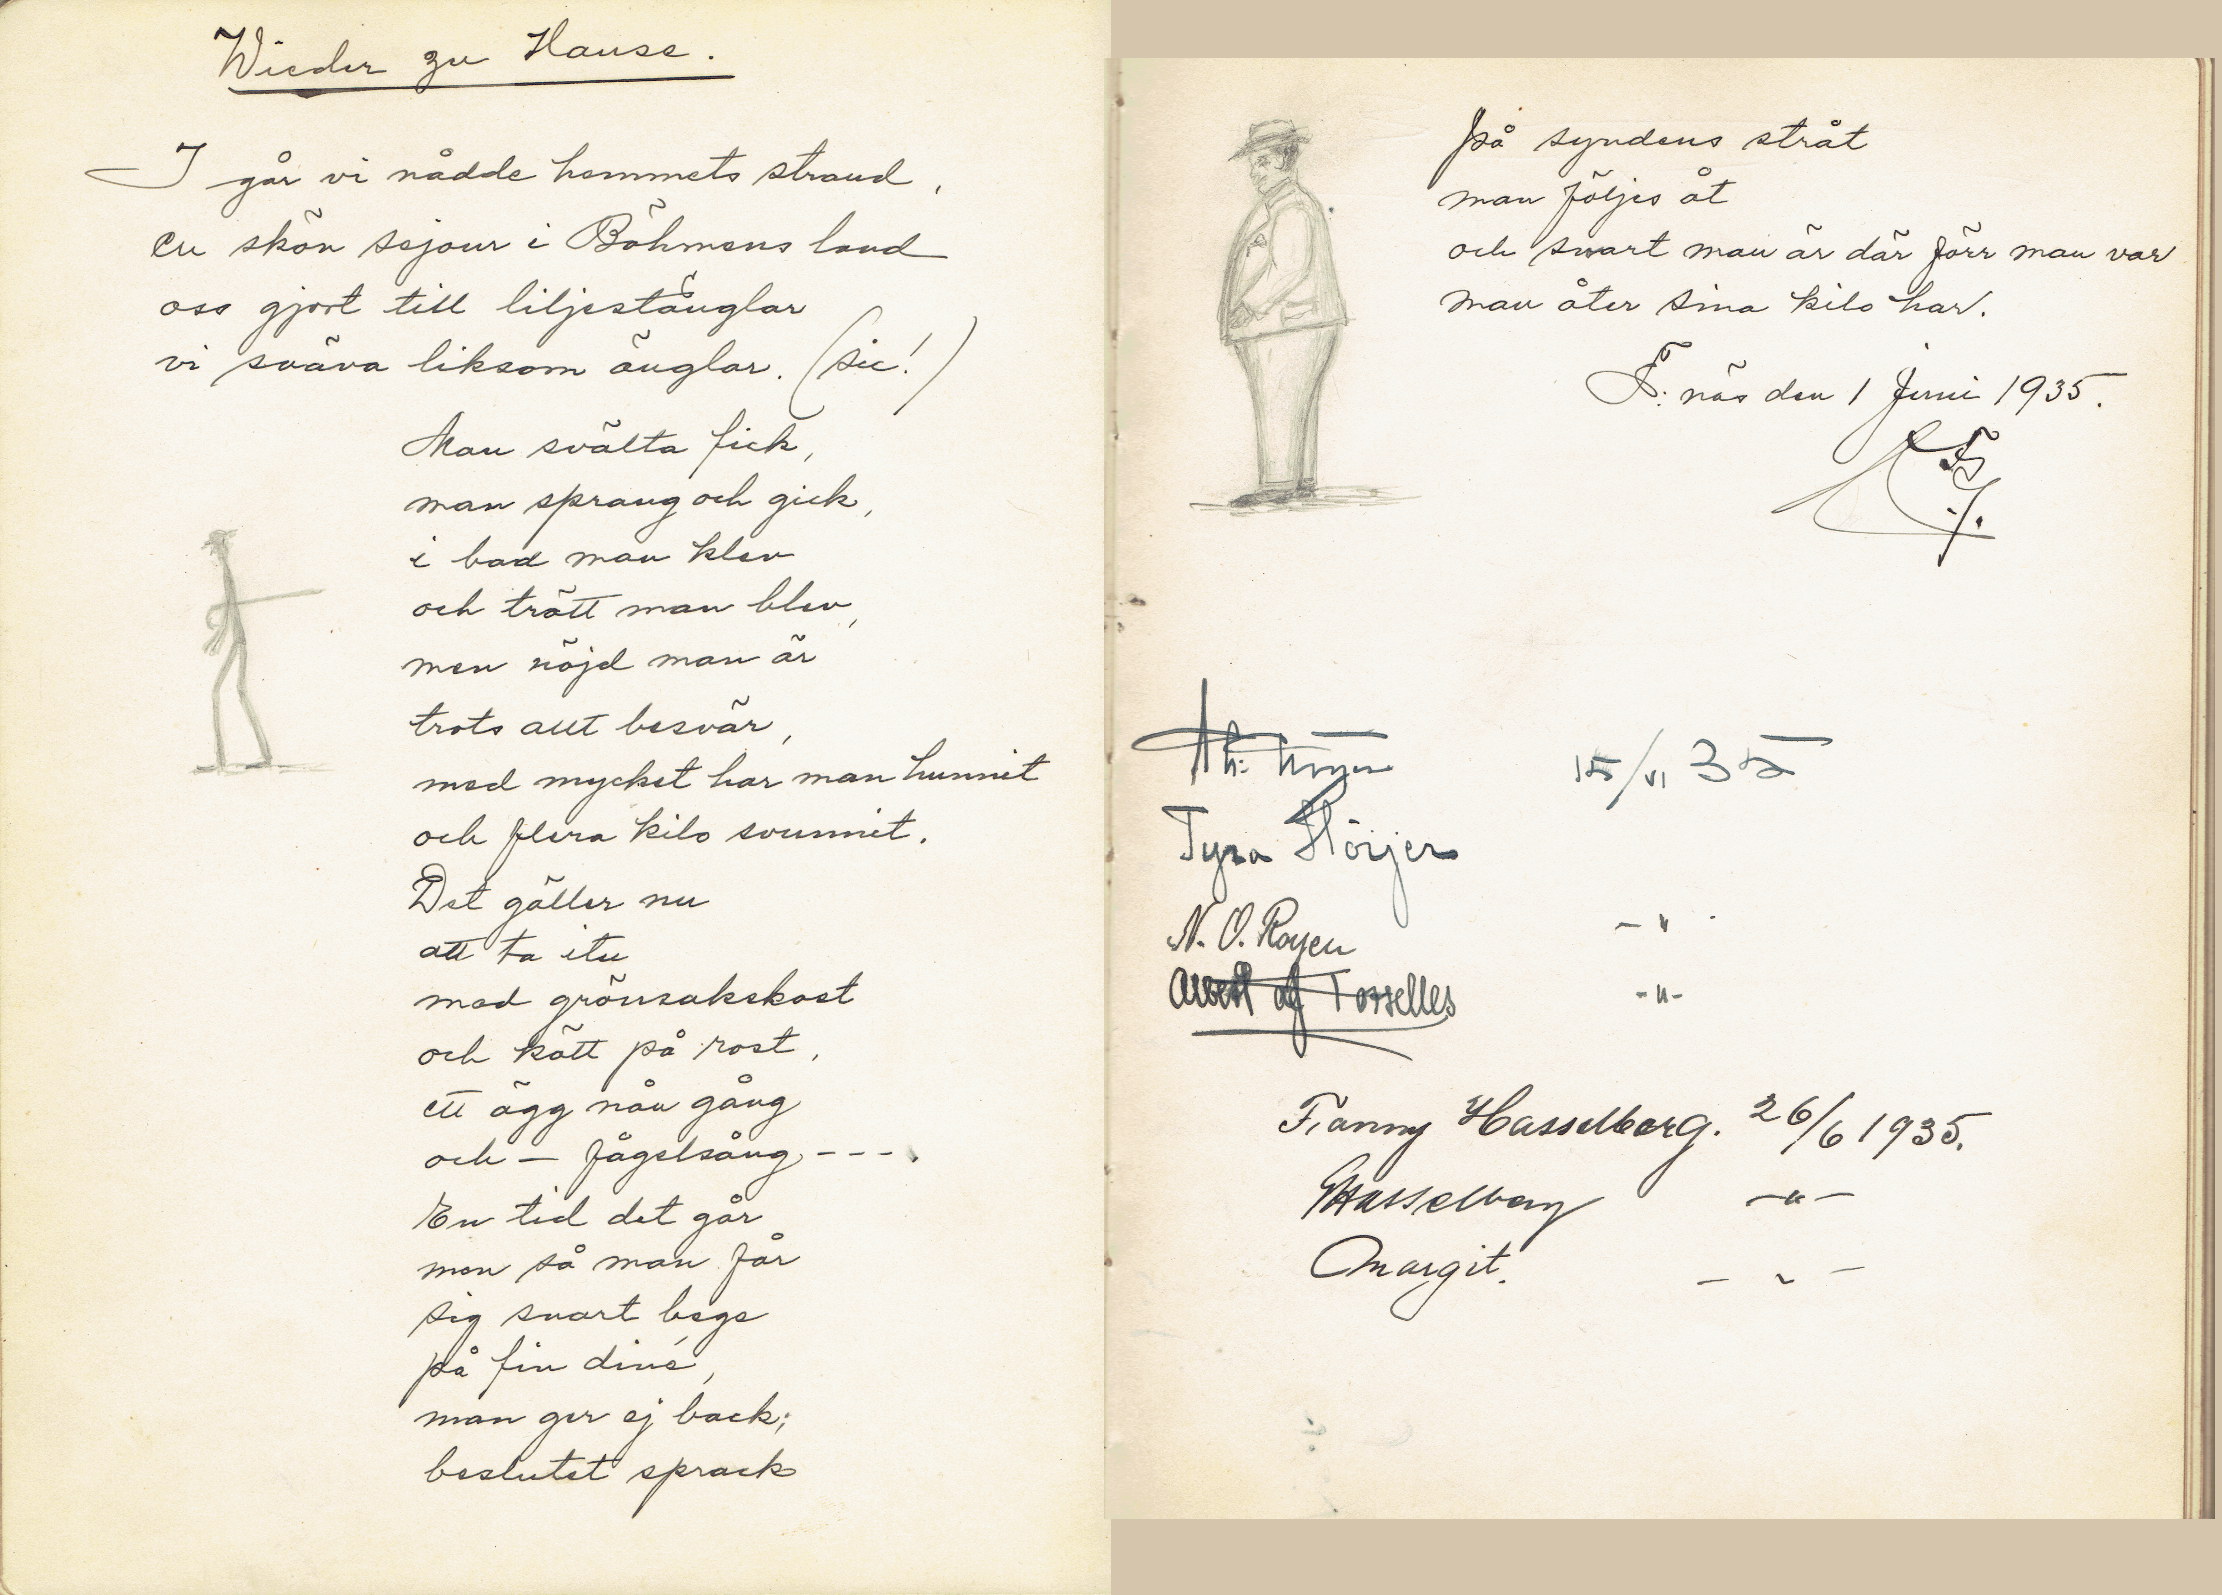 Wieder zu Hause.
I går vi nådde hemmets strand,
en skön sejour i Böhmens land
oss gjort till liljestänglar
vi sväva liksom änglar. (sic!)
Man svälta fick,
man sprang och gick,
i bad man klev
och trött man blev,
men nöjd man är
trots allt besvär,
med mycket har man hunnit
och flera kilo svunnit.
Det gäller nu
att ta itu
med grönsakskost
och kött på rost,
ett ägg nån gång
och – fågelsång - - - .
En tid det går
men så man får
sig snart bege
på fin diné,
man ger ej back;
beslutet sprack
På syndens stråt
man följes åt
och snart man är där förr man var
man åter sina kilo har.
F:näs den 1 Juni 1935.
15/VI 35
Tyra Hörjer
N. O. Royen -"-
Albert af -"-
Fanny Hasselberg. 26/6 1935.
Hasselberg -"-
Margit. - " -